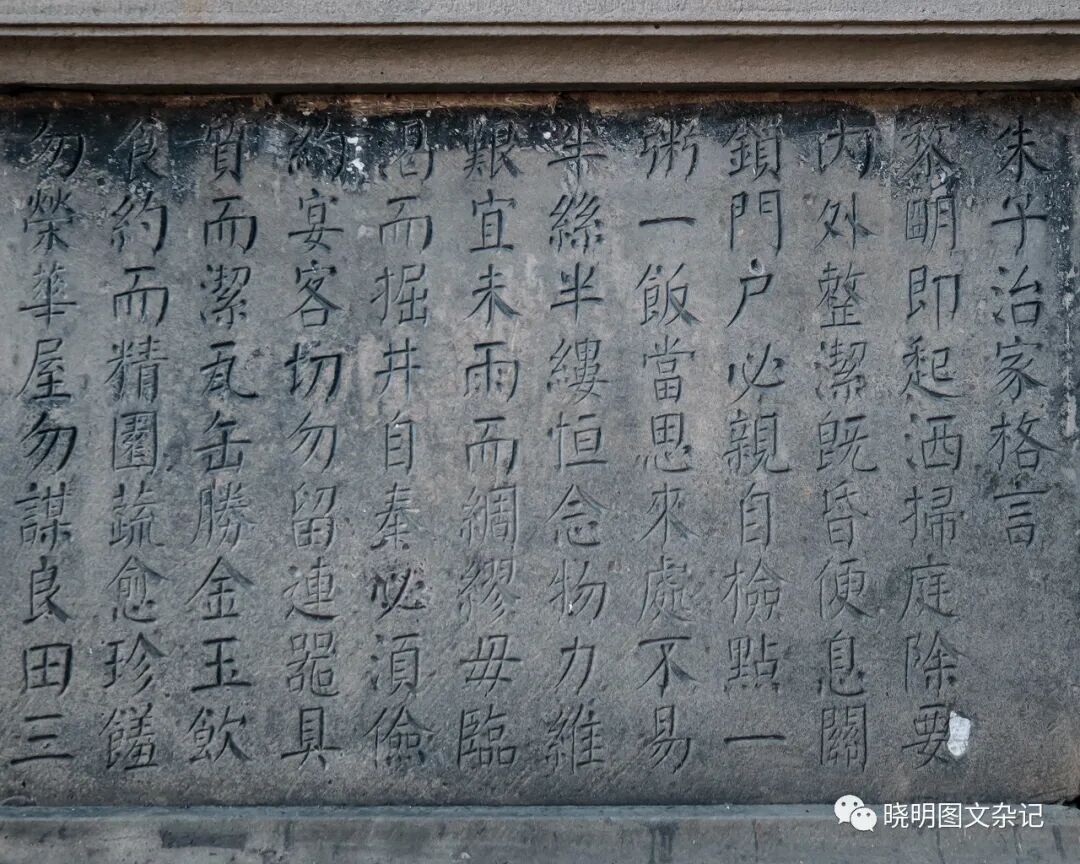 朱子治家格言
黎明即起洒掃庭除要
内外整潔既昏便息關
鎖門户必親自檢點一
粥一飯當思來處不易
半絲半縷恒念物力維
艱宜未雨而綢繆毋臨
渴而掘井自奉必須儉
約宴客切勿留連器具
質而潔瓦缶勝金玉飲
食約而精園蔬愈珍饈
勿榮華屋勿謀良田三
晓明图文杂记